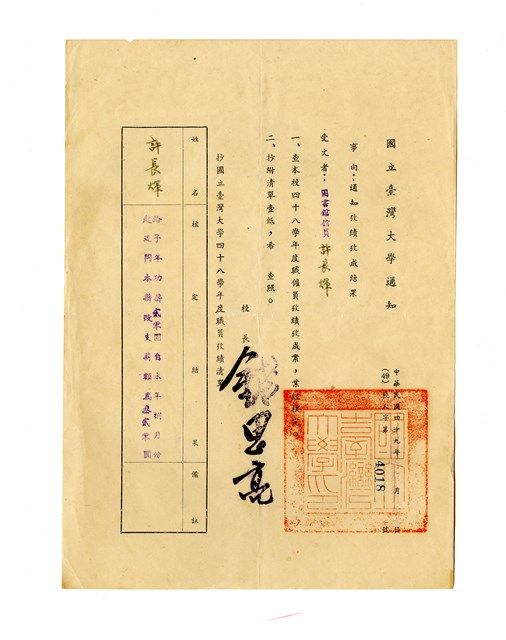 國立臺灣大學通知
中華民國四十九年 月 日
(49)校人字第 4018 號
事由：通知攷績攷成結果
受文者：圖書館館員 許長輝
一、查本校四十八學年度職僱員攷績攷成業，業經核定。
二、抄附清單壹紙，希 查照。
校長 錢思亮
抄國立臺灣大學四十八學年度職員攷績清單
姓名 核定結果 備註
許長輝
給予年功薪貳零圓自本年捌月份
起連同本薪改支薪額為